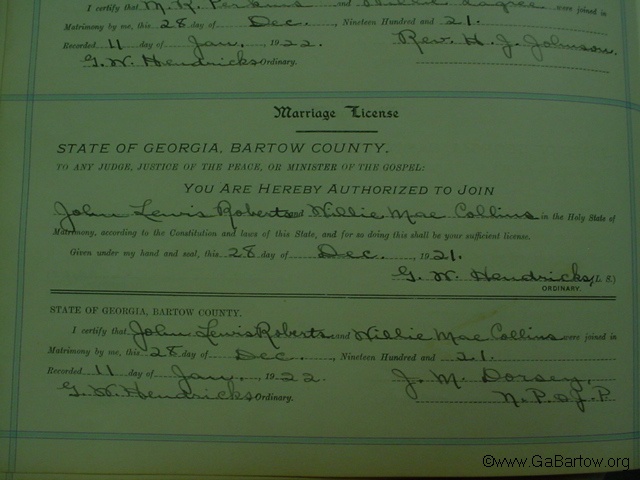 I certify that M. R. Perkins and Willie were joined in
Matrimony by me, this 28 day of Dec. , Nineteen Hundred and 21.
Recorded 11 day of Jan. , 1922. Rev. H. J. Johnson.
G. W. Hendricks Ordinary.
Marriage License
STATE OF GEORGIA, BARTOW COUNTY.
TO ANY JUDGE, JUSTICE OF THE PEACE, OR MINISTER OF THE GOSPEL:
YOU ARE HEREBY AUTHORIZED TO JOIN
John Lewis Roberts and Willie Mae Collins in the Holy State of
Matrimony, according to the Constitution and laws of this State, and for so doing this shall be your sufficient license.
Given under my hand and seal, this 28 day of Dec. , 1921.
G. W. Hendricks (L. S.)
ORDINARY.
STATE OF GEORGIA, BARTOW COUNTY.
I certify that John Lewis Roberts and Willie Mae Collins were joined in
Matrimony by me, this 28 day of Dec. , Nineteen Hundred and 21.
Recorded 11 day of Jan. , 1922. J. M. Dorsey,
G. W. Hendricks Ordinary. N. P. & J. P.
©www.GaBartow.org